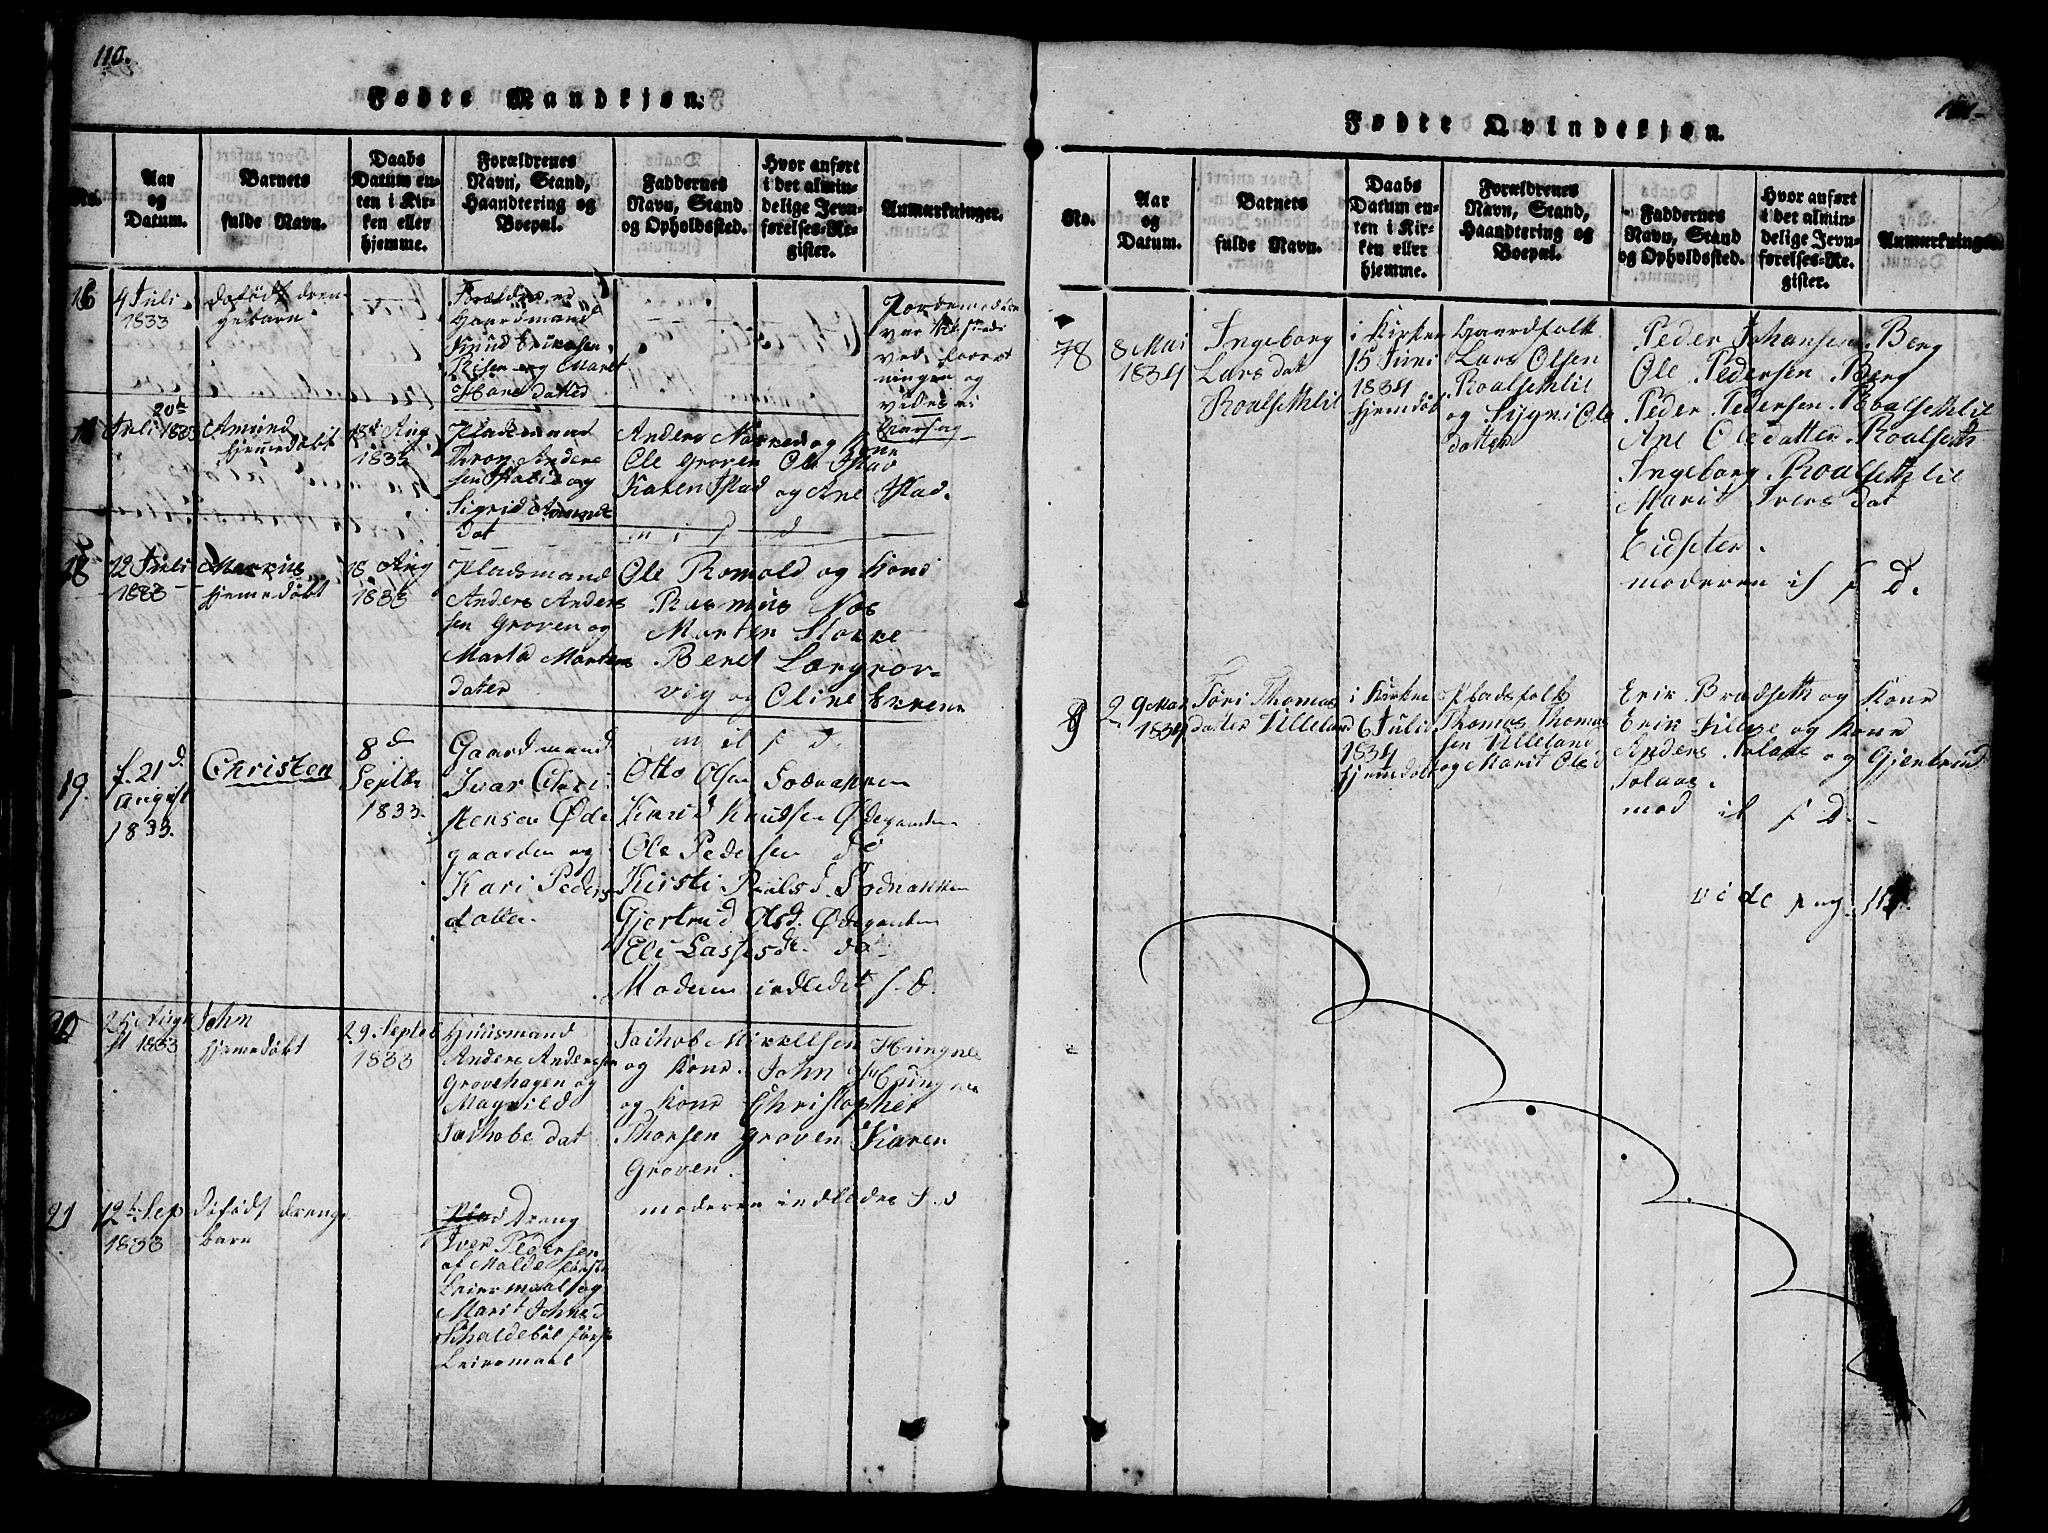 110.
Fødte Mandkjøn.
No.
Aar
og
Datum.
Barnets
fulde Navn.
Daabs
Datum en-
ten i Kir-
ken eller
hjemme.
Forældrenes
Navn, Stand,
Haandtering og
Boepæl.
Faddernes
Navn, Stand
og Opholdssted.
Hvor anført
i det almin-
delige Jevn-
førelses-Re-
gister.
Anmærkninger.
16
4 Juli
1833
døfødt dren-
gebarn
Forældre er
Gaardmand
Knud Eriksen
Risen og Marit
Hansdatter
Jordemoderen
var tilstede
ved forret
ningen og
vides ei
Aarsag
20de
Juli 1833
Amund
hjemedøbt
18d Aug
1833
Pladsmand
Tron Anders
sen Istad og
Sigrid Amunds
dat
Anders Nørreds og Kone
Ole Groven Ole Istad
Karen Istad og Ane Istad.
m i f d
18
12 Juli
1833
Markus
hjemedøbt
18 Aug
1833
Pladsmand
Anders Anders
sen Groven og
Marta Mortens
dater
Ole Romold og Kone
Rasmus Nos
Morten Stokke
Beret Lergrov-
vig og Oline Ekren
m il f d.
19.
f. 21d
August
1833.
Christen
8d
Septbr
1833.
Gaardmand
Ivar Chri-
stensen Øde
gaarden og
Kari Peders
datter.
Otto Olsen Sødnakken
Knud Knudsen Ødegaarden
Ole Pedersen do
Kirsti Pålsd. Sødnakken
Gjertrud Olsd. Ødegaarden
Eli Lassesd. do
Moderen indledet s. d.
20
25 Augu
st 1833
John
hjemedøbt
29 Septbr
1833
Huusmand
Anders Andersen
Grovehagen og
Magnild
Jachobs dat
Jachob Mikkelsen Hungnes
og Kone. John Hungnes
og Kone Christopher
Thorsen Groven Karen
Groven.
moderen indledes s. d
21
12te Sep
1833
Døfødt drenge
barn
Dreng
Iver Pedersen
af Molde første
Leiermaal og
Marit Johnsd
Skaldebøl første
Leiermaal
Fødte Qvindekjøn.
No.
Aar
og
Datum.
Barnets
fulde Navn.
Daabs
Datum en-
ten i Kir-
ken eller
hjemme.
Forældrenes
Navn, Stand,
Haandtering og
Boepæl.
Faddernes
Navn, Stand
og Opholdssted.
Hvor anført
i det almin-
delige Jevn-
førelses-Re-
gister.
Anmærkninger.
78
8 Mai
1834
Ingeborg
Lars dat
Roalsethlil
i Kirken
15 Juni
1834
hjemdøbt
Gaardfolk
Lars Olsen
Roalsethlil
og Signi Ole
datter
Peder Johansen Berg
Ole Pedersen Berg
Peder Pedersen Roalsethlil
Ane Oledatter Roalseth
Ingeborg Roalsethlil
Marit Ivers dat
Eidseter.
moderen il f D.
9
29 Mai
1834
Töri Thomas
datter Ulleland
i Kirken
6 Juli
1834
hjemdøbt
Pladsfolk
Thomas Thomas
sen Ulleland
og Marit Olsd
Erik Bradseth og Kone
Erik Julaxe og Kone
Anders Solaas og Gjertrud
Solaas.
mod il f D.
vide pag. 11